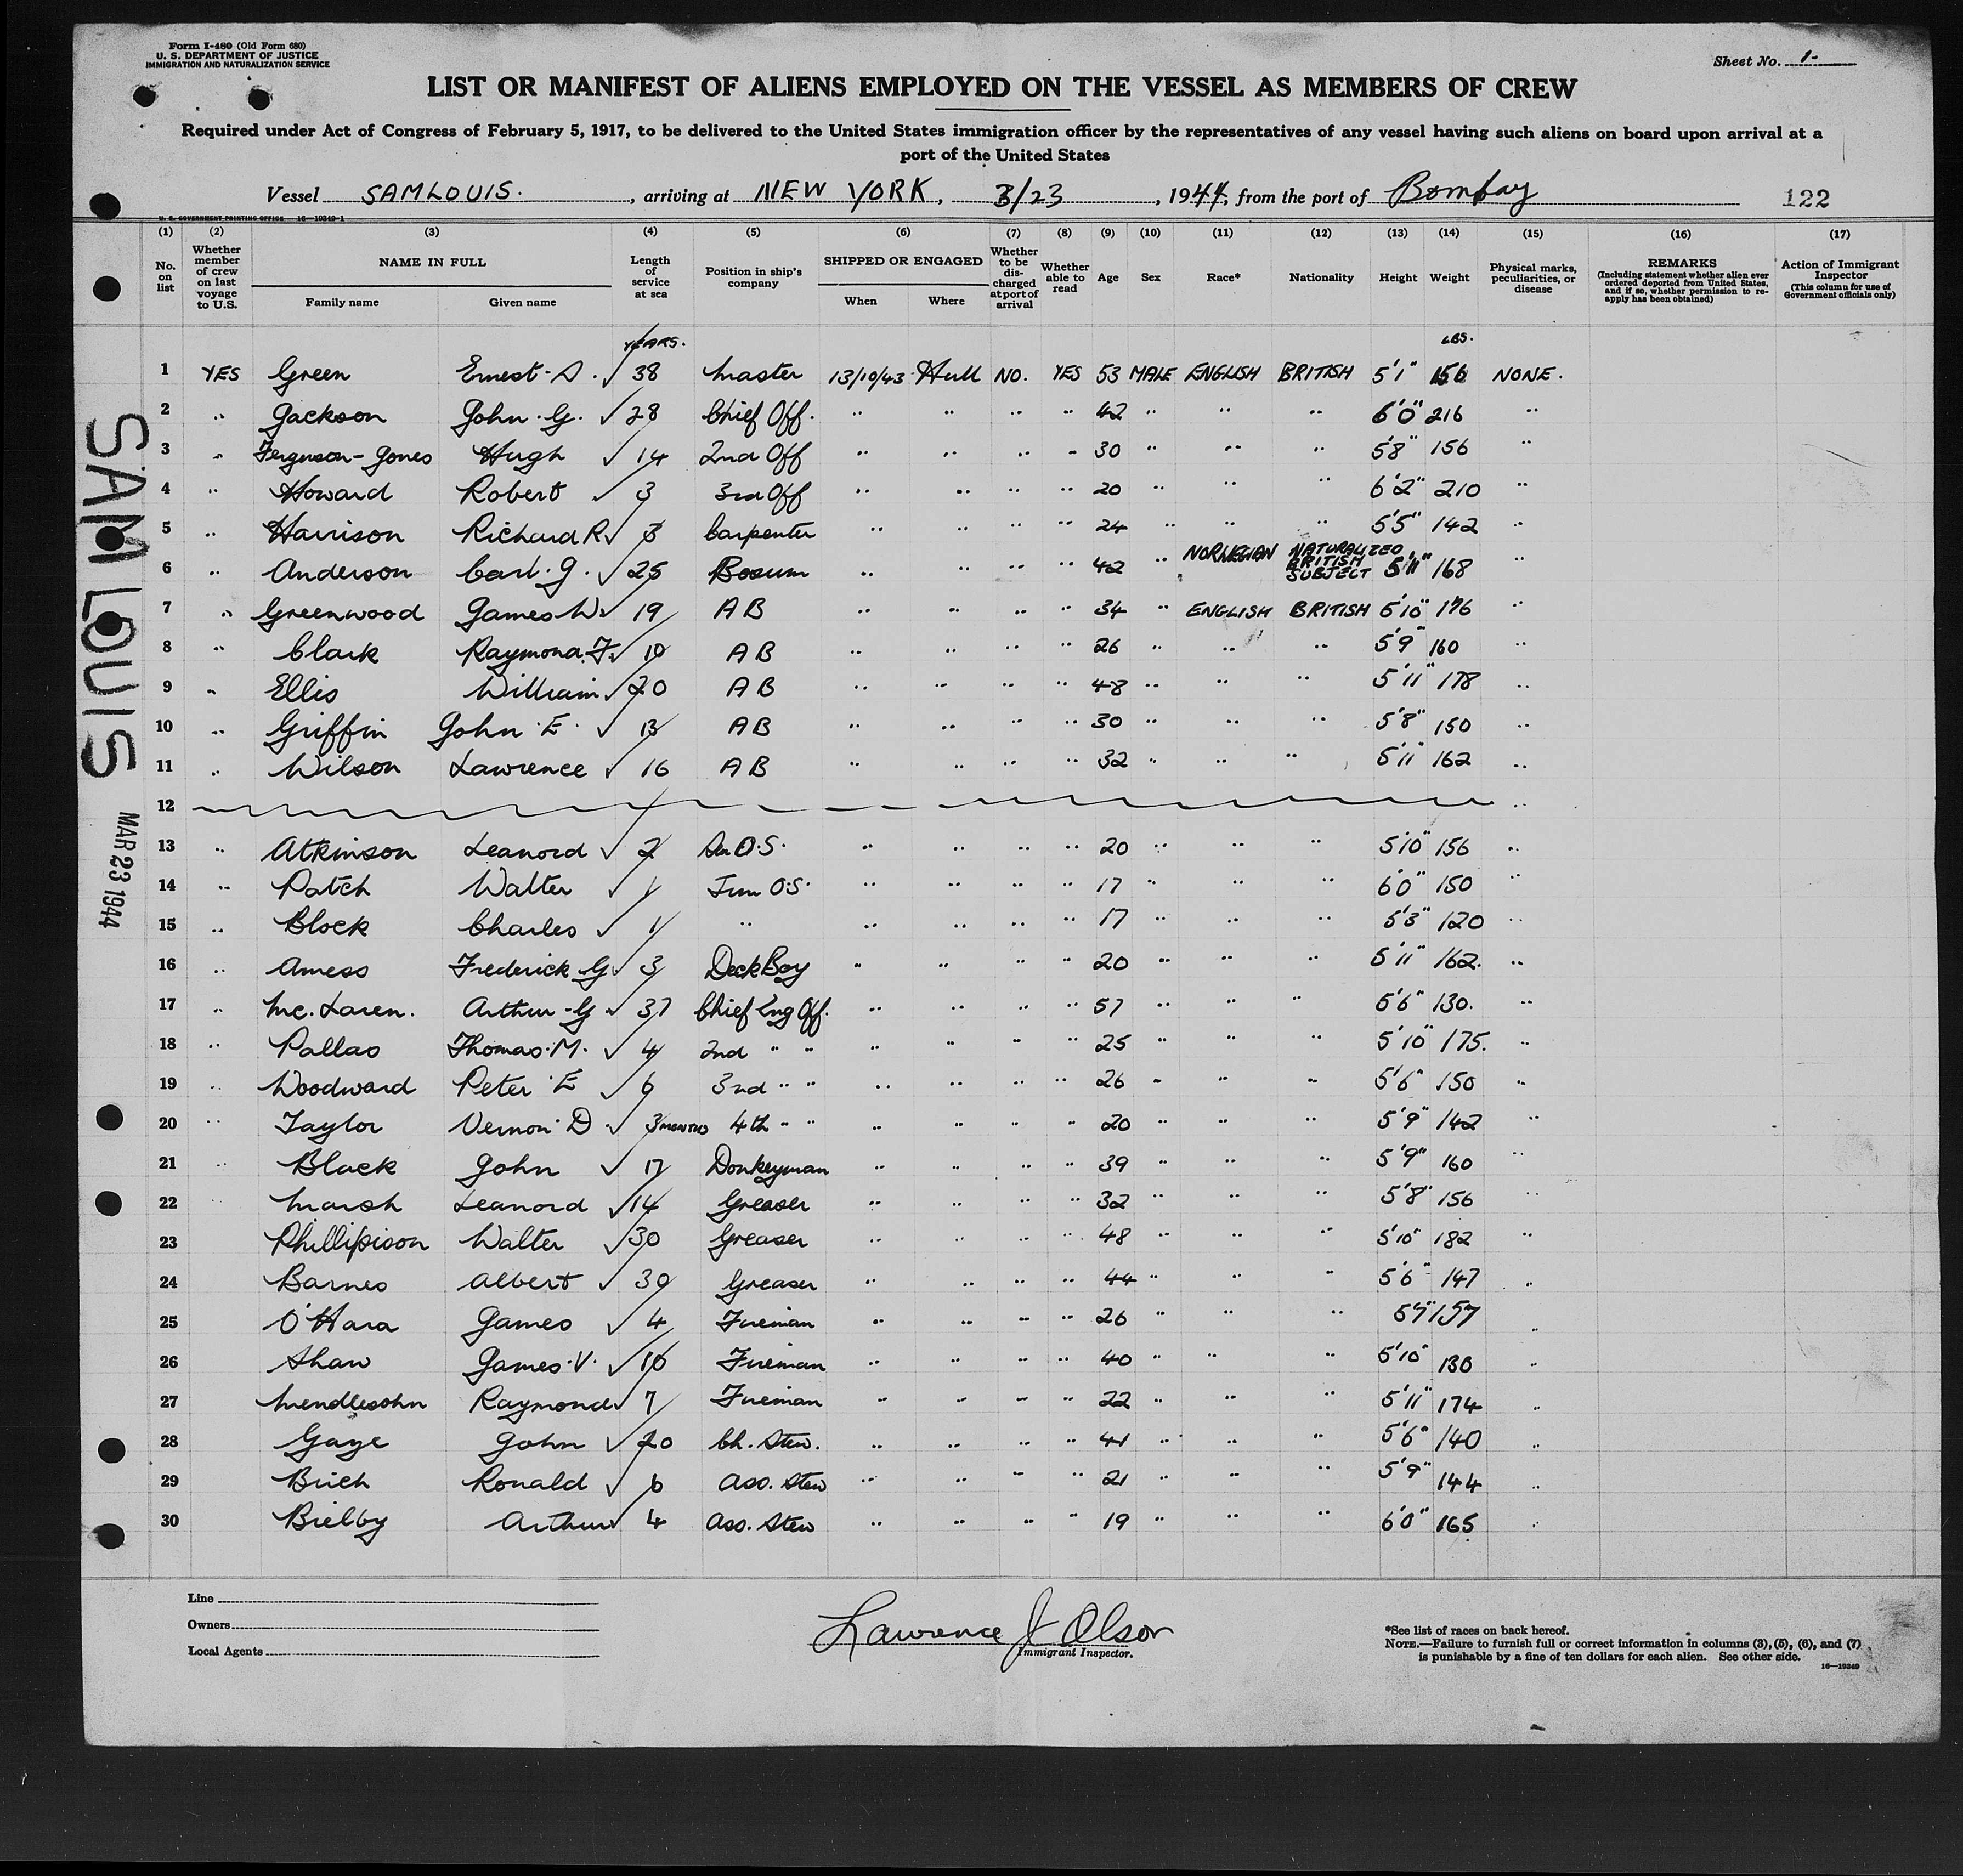 Form I-480 (Old Form 680)
U. S. DEPARTMENT OF JUSTICE
IMMIGRATION AND NATURALIZATION SERVICE
Sheet No. 1-
LIST OR MANIFEST OF ALIENS EMPLOYED ON THE VESSEL AS MEMBERS OF CREW
Required under Act of Congress of February 5, 1917, to be delivered to the United States immigration officer by the representatives of any vessel having such aliens on board upon arrival at a
port of the United States
Vessel SAMLOUIS. , arriving at NEW YORK , 3/23 , 1944, from the port of Bombay 122
U. S. GOVERNMENT PRINTING OFFICE 16—19349-1
(1) (2) (3) (4) (5) (6) (7) (8) (9) (10) (11) (12) (13) (14) (15) (16) (17)
No. on list
Whether member of crew on last voyage to U.S.
NAME IN FULL
Family name Given name
Length of service at sea
Position in ship's company
SHIPPED OR ENGAGED
When Where
Whether to be discharged at port of arrival
Whether able to read
Age Sex Race* Nationality Height Weight
Physical marks, peculiarities, or disease
REMARKS
(Including statement whether alien ever ordered deported from United States, and if so, whether permission to reapply has been obtained)
Action of Immigrant Inspector
(This column for use of Government officials only)
YEARS. LBS.
1 YES Green Ernest. A. 38 Master 13/10/43 Hull NO. YES 53 MALE ENGLISH BRITISH 5'1" 156 NONE.
2 " Jackson John. G. 28 Chief Off. " " " " 42 " " " 6'0" 216 "
3 " Ferguson-Jones Hugh 14 2nd Off " " " " 30 " " " 5'8" 156 "
4 " Howard Robert 3 3rd Off " " " " 20 " " " 6'2" 210 "
5 " Harrison Richard R 3 Carpenter " " " " 24 " " " 5'5" 142 "
6 " Anderson Carl. J. 25 Bosum " " " " 42 " NORWEGIAN NATURALIZED BRITISH SUBJECT 5'11" 168 "
7 " Greenwood James W 19 AB " " " " 34 " ENGLISH BRITISH 5'10" 176 "
8 " Clark Raymond. F. 10 AB " " " " 26 " " " 5'9" 160 "
9 " Ellis William 20 AB " " " " 48 " " " 5'11" 178 "
10 " Griffin John E. 13 AB " " " " 30 " " " 5'8" 150 "
11 " Wilson Lawrence 16 AB " " " " 32 " " " 5'11" 162 "
12 "
13 " Atkinson Leanord 2 Sen O.S. " " " " 20 " " " 5'10" 156 "
14 " Patch Walter 1 Jun O.S. " " " " 17 " " " 6'0" 150 "
15 " Block Charles 1 " " " " " 17 " " " 5'3" 120 "
16 " Amess Frederick G 3 Deck Boy " " " " 20 " " " 5'11" 162. "
17 " Mc. Laren. Arthur-G 37 Chief Eng Off. " " " " 57 " " " 5'6" 130. "
18 " Pallas Thomas. M. 4 2nd " " " " " " 25 " " " 5'10" 175. "
19 " Woodward Peter E 6 3rd " " " " " " 26 " " " 5'6" 150 "
20 " Taylor Vernon D 3 MONTHS 4th " " " " " " 20 " " " 5'9" 142 "
21 " Black John 17 Donkeyman " " " " 39 " " " 5'9" 160 "
22 " Marsh Leanord 14 Greaser " " " " 32 " " " 5'8" 156 "
23 Phillipison Walter 30 Greaser " " " " 48 " " " 5'10" 182 "
24 Barnes Albert 30 Greaser " " " " 44 " " " 5'6" 147 "
25 O'Hara James 4 Fireman " " " " 26 " " " 5'7" 157 "
26 Shaw James. V. 10 Fireman " " " " 40 " " " 5'10" 130 "
27 Mendlesohn Raymond 7 Fireman " " " " 22 " " " 5'11" 174 "
28 Gaye John 20 Ch. Stew. " " " " 41 " " " 5'6" 140 "
29 Ronald 6 Ass. Stew " " " " 21 " " " 5'9" 144 "
30 Bielby Arthur 4 Ass. Stew " " " " 19 " " " 6'0" 165 "
SAMLOUIS
MAR 23 1944
Line
Owners
Local Agents
Lawrence J Olson
Immigrant Inspector.
*See list of races on back hereof.
NOTE.—Failure to furnish full or correct information in columns (3), (5), (6), and (7)
is punishable by a fine of ten dollars for each alien. See other side.
16—19349